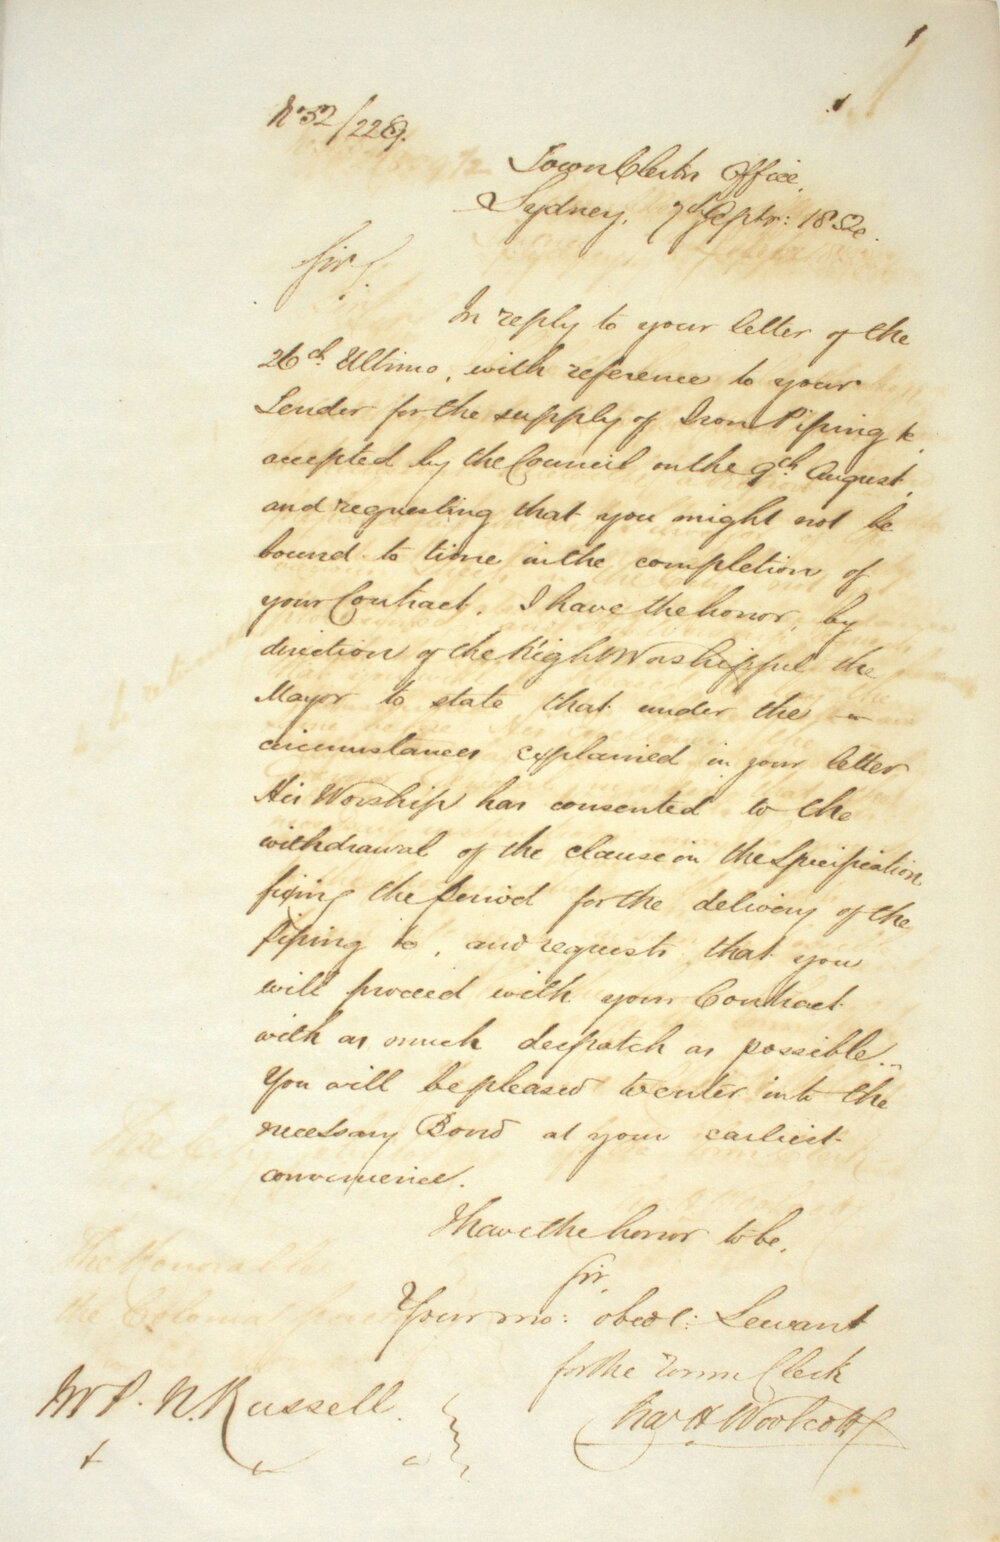 No 52/228.
1
Town Clerks Office,
Sydney, 7th Septr: 1852.
Sir,
In reply to your letter of the
26th Ultimo, with reference to your
Tender for the supply of Iron Piping &c
accepted by the Council on the 9th August,
and requesting that you might not be
bound to time in the completion of
your Contract. I have the honor, by
direction of the Right Worshipful the
Mayor to state that under the
circumstances explained in your letter
His Worship has consented to the
withdrawal of the clause in the Specification
fixing the period for the delivery of the
Piping &c, and requests that you
will proceed with your Contract
with as much despatch as possible.
You will be pleased to enter into the
necessary Bond at your earliest
convenience.
I have the honor to be,
Sir,
Your mo: obedt: Servant
for the Town Clerk
Chas H Woolcott
Mr P. N. Russell.